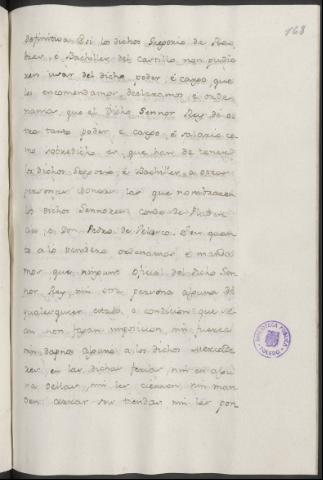 168
definitiva. E si los dichos Gregorio de
é Bachiller del Castillo non pudie
ren usar del dicho poder, é cargo que
les encomendamos declaramos, é orde
namos, que el dicho Sennor Rey dé o
tro tanto poder, e cargo, é salario co
mo sobredicho es que han de tener
los dichos Gregorio, é Bachiller, a otras
personas idoneas las que nombraren
los dichos Sennores Conde de
e Don Pedro de Velasco. Otrosi quan
to a lo tendero ordenamos é manda
mos que ningunt oficial del dicho Sen
nor Rey nin otra persona alguna de
qualesquier estado, o condicion que se
an non fagan imposicion nin fuerza
nin dapnos alguno a los dichos Mercade
res en las dichas ferias nin en algu
na dellas, nin les cierren nin man
den cerrar sus tiendas nin les pon
BIBLIOTECA PUBLICA
TOLEDO